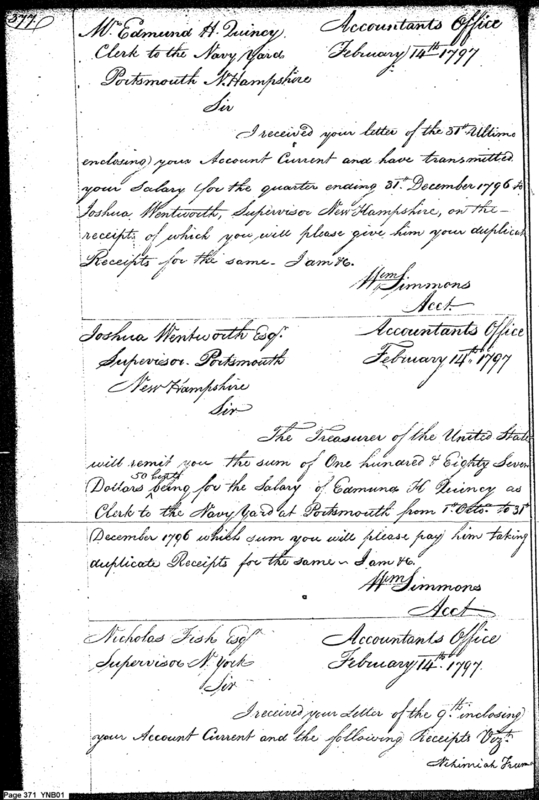 377
Mr. Edmund H. Quincy Accountants Office
Clerk to the Navy Yard February 14th 1797
Portsmouth N. Hampshire
Sir
I received your letter of the 31st Ultimo
enclosing your Account Current and have transmitted
your Salary for the quarter ending 31st December 1796 to
Joshua Wentworth, Supervisor New Hampshire, on the
receipts of which you will please give him your duplicate
Receipts for the same. I am &c.
Wm Simmons
Acct.
Joshua Wentworth Esqr. Accountants Office
Supervisor Portsmouth February 14th 1797
New Hampshire
Sir
The Treasurer of the United State
will remit you the sum of One hundred & Eighty Seven
50 Cents
Dollars ^ being for the Salary of Edmund H Quincy as
Clerk to the Navy Yard at Portsmouth from 1st Octo. to 31st
December 1796 which sum you will please pay him taking
duplicate Receipts for the same - I am &c.
Wm Simmons
Acct
Nicholas Fish Esqr. Accountants Office
Supervisor N. York February 14th 1797
Sir
I received your Letter of the 9th inclosing
your Account Current and the following Receipts Vizt.
Nehimiah
Page 371 YNB01